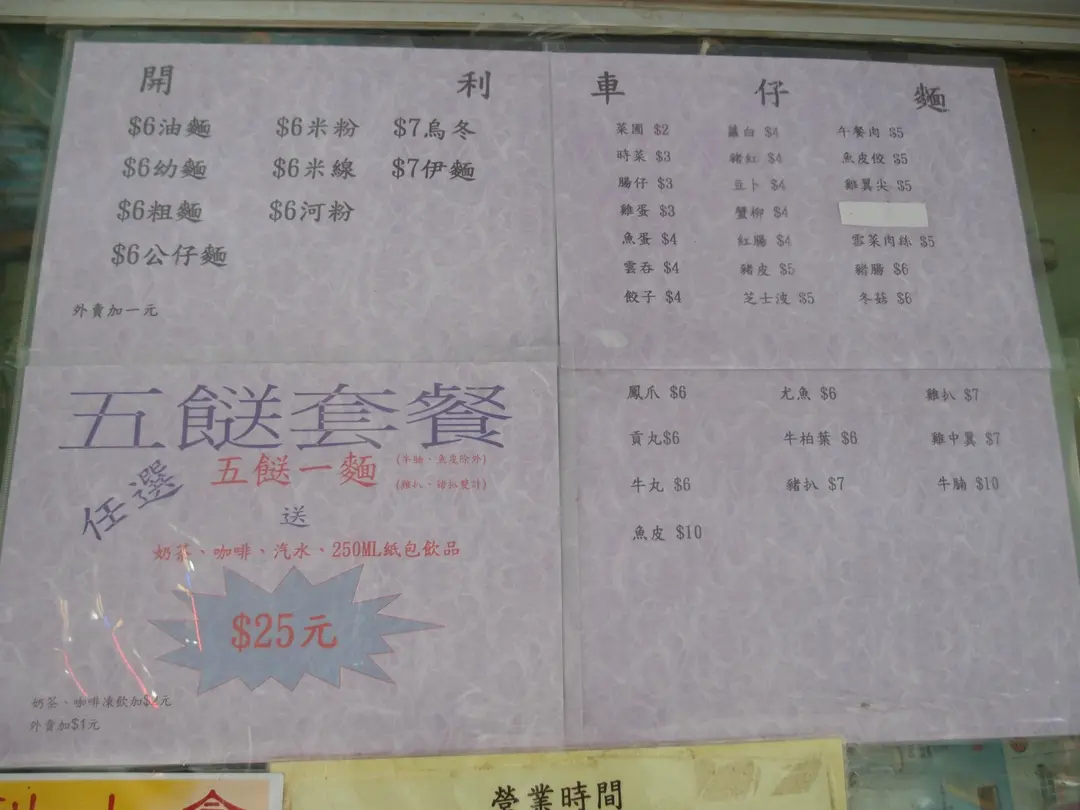 開利車仔麵
$6油麵 $6米粉 $7烏冬
$6幼麵 $6米線 $7伊麵
$6粗麵 $6河粉
$6公仔麵
外賣加一元
菜圃 $2 蘿白 $4 午餐肉 $5
時菜 $3 豬紅 $4 魚皮餃 $5
腸仔 $3 豆卜 $4 雞翼尖 $5
雞蛋 $3 蟹柳 $4
魚蛋 $4 紅腸 $4 雪菜肉絲 $5
雲吞 $4 豬皮 $5 豬腸 $6
餃子 $4 芝士波 $5 冬菇 $6
五餸套餐
任選
五餸一麵
(牛腩、魚皮除外)
(雞扒、豬扒雙計)
送
奶茶、咖啡、汽水、250ML紙包飲品
$25元
奶茶、咖啡凍飲加$2元
外賣加$1元
鳳爪 $6 尤魚 $6 雞扒 $7
貢丸$6 牛柏葉 $6 雞中翼 $7
牛丸 $6 豬扒 $7 牛腩 $10
魚皮 $10
營業時間